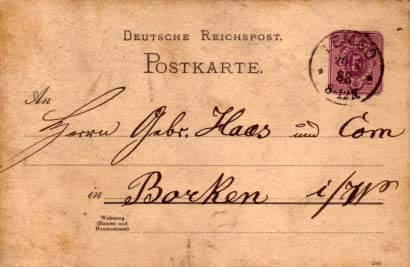 DEUTSCHE REICHSPOST.
POSTKARTE.
LEMGO
88
8-12N.
5
An
Herrn Gebr. Haas und Com
in Borken i/W
Wohnung
(Strasse und
Hausnummer)